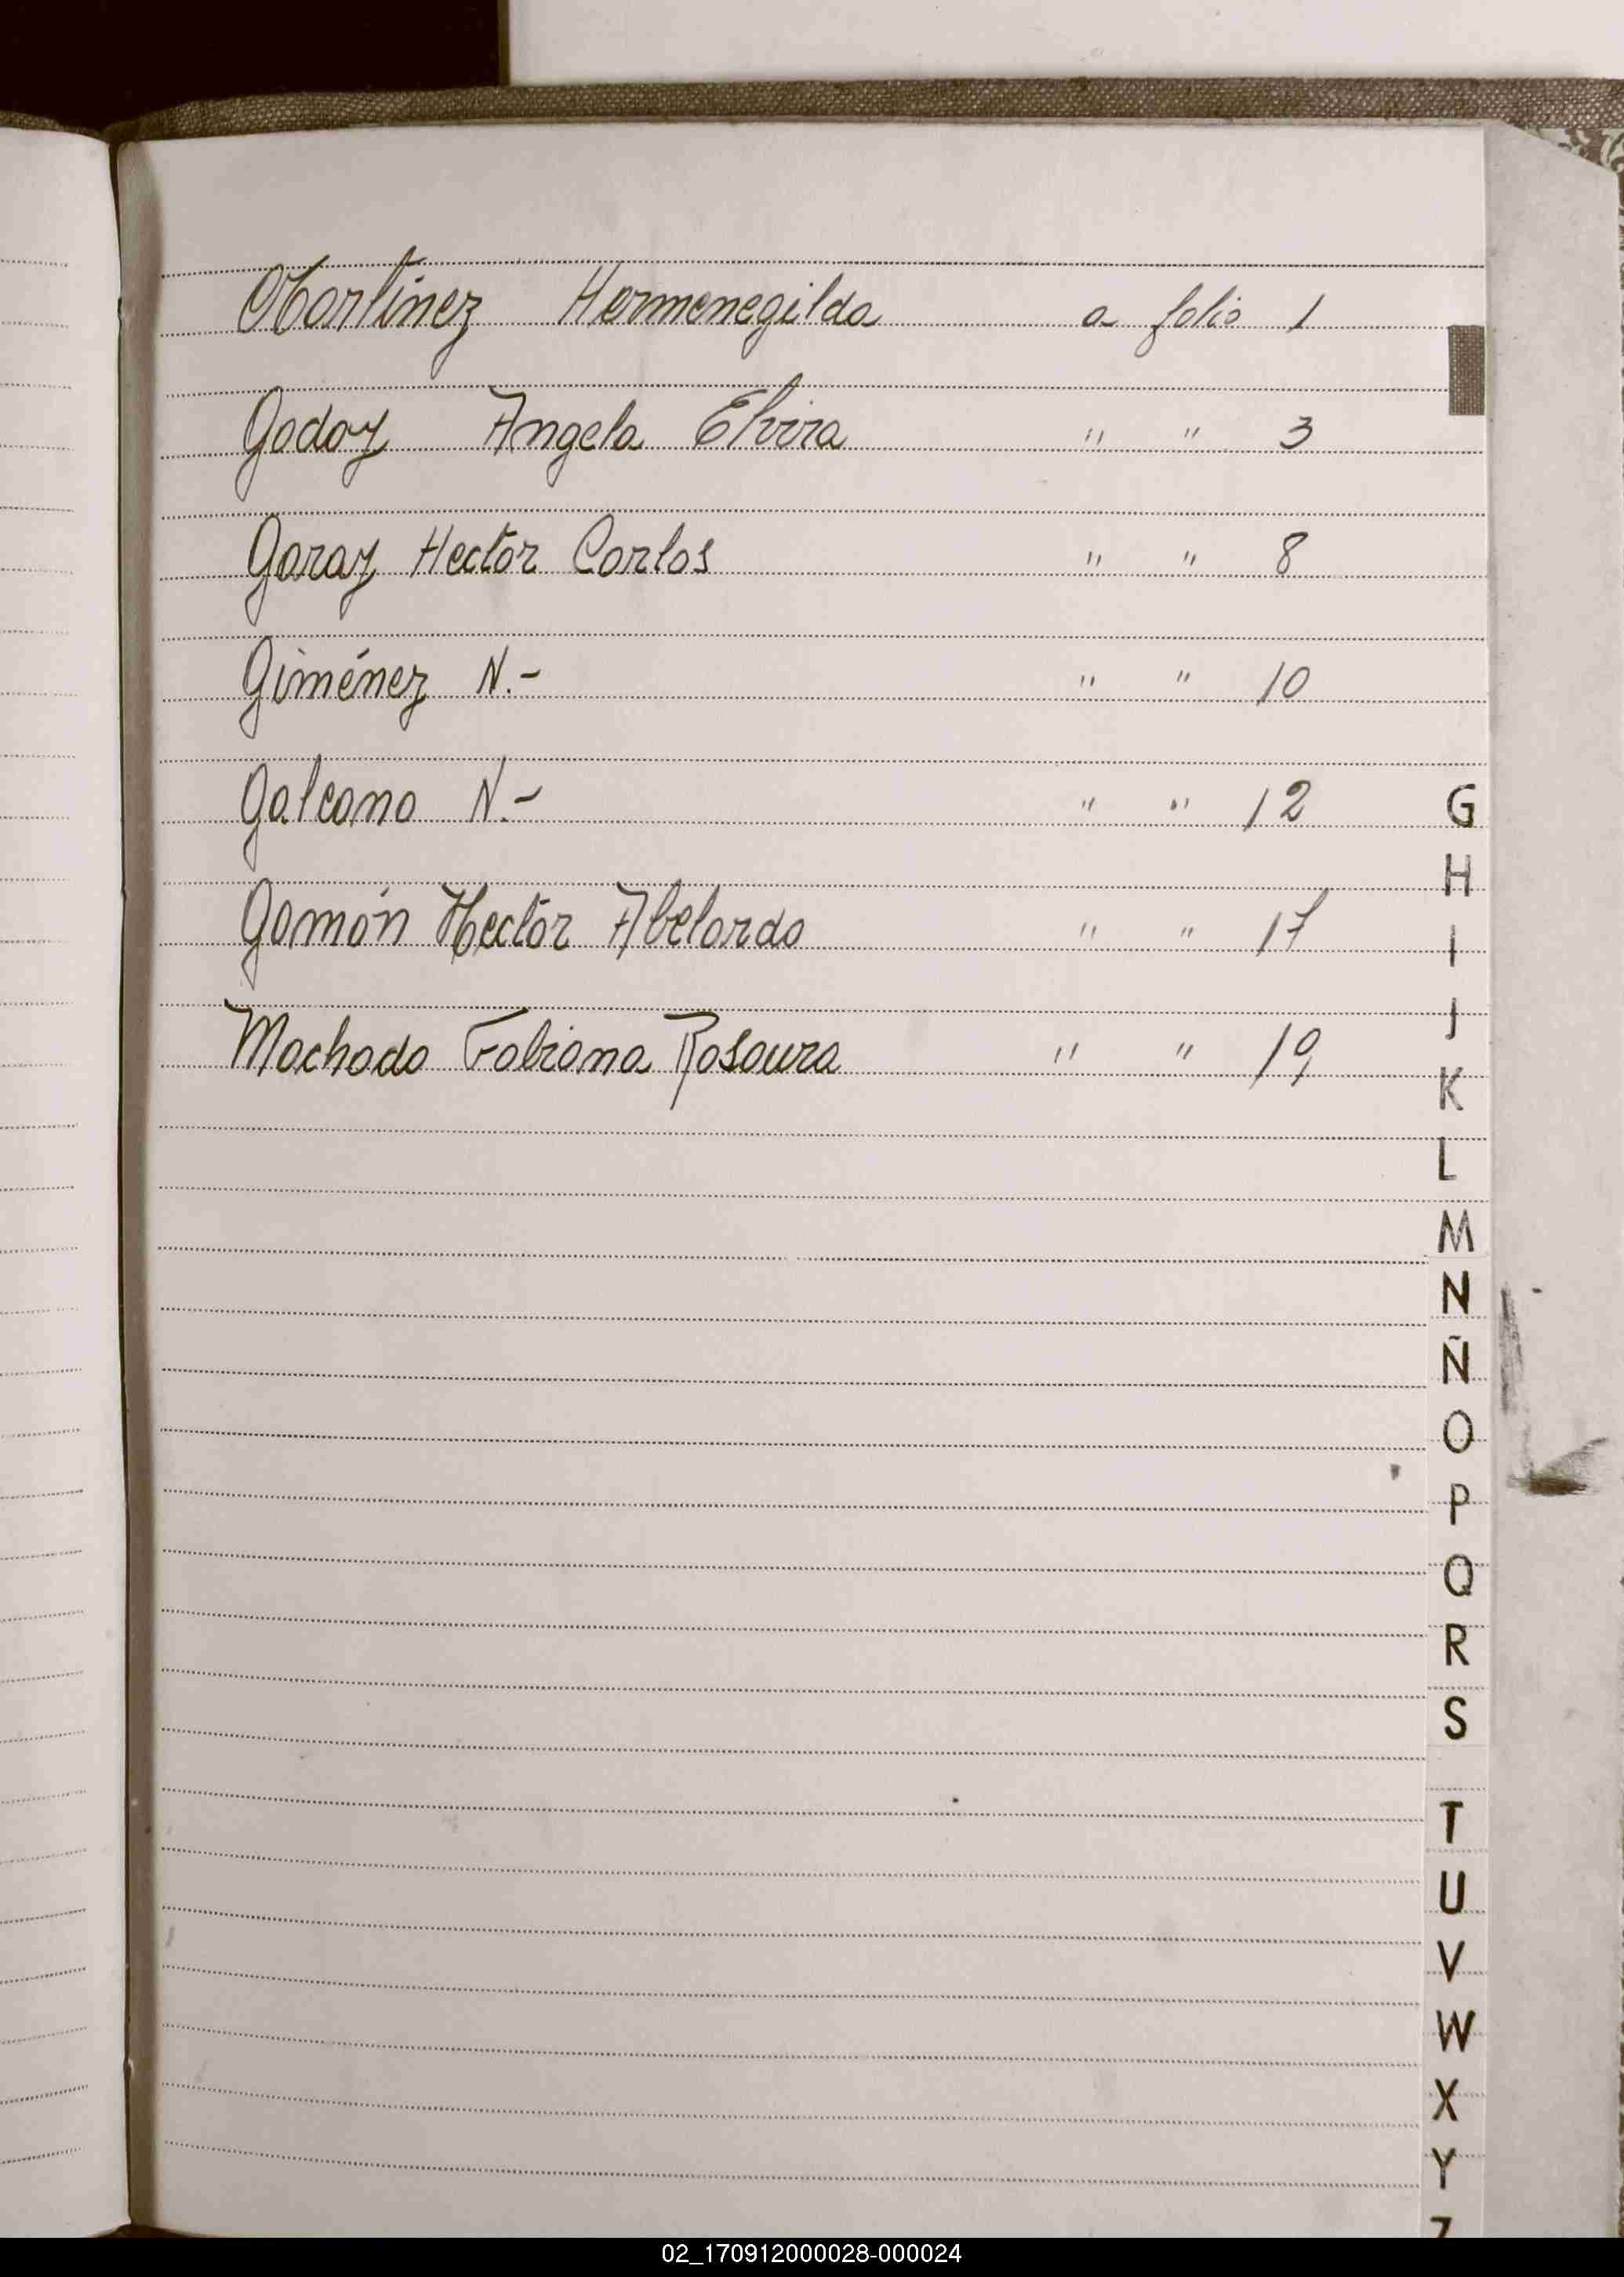 Martínez Hermenegilda a folio 1
Godoy Angela Elvira " " 3
Garay Hector Carlos " " 8
Giménez N.- " " 10
Galeano N.- " " 12
Gamón Hector Abelardo " " 17
Machado Fabiana Rosaura " " 19
G
H
I
J
K
L
M
N
Ñ
O
P
Q
R
S
T
U
V
W
X
Y
Z
02_170912000028-000024